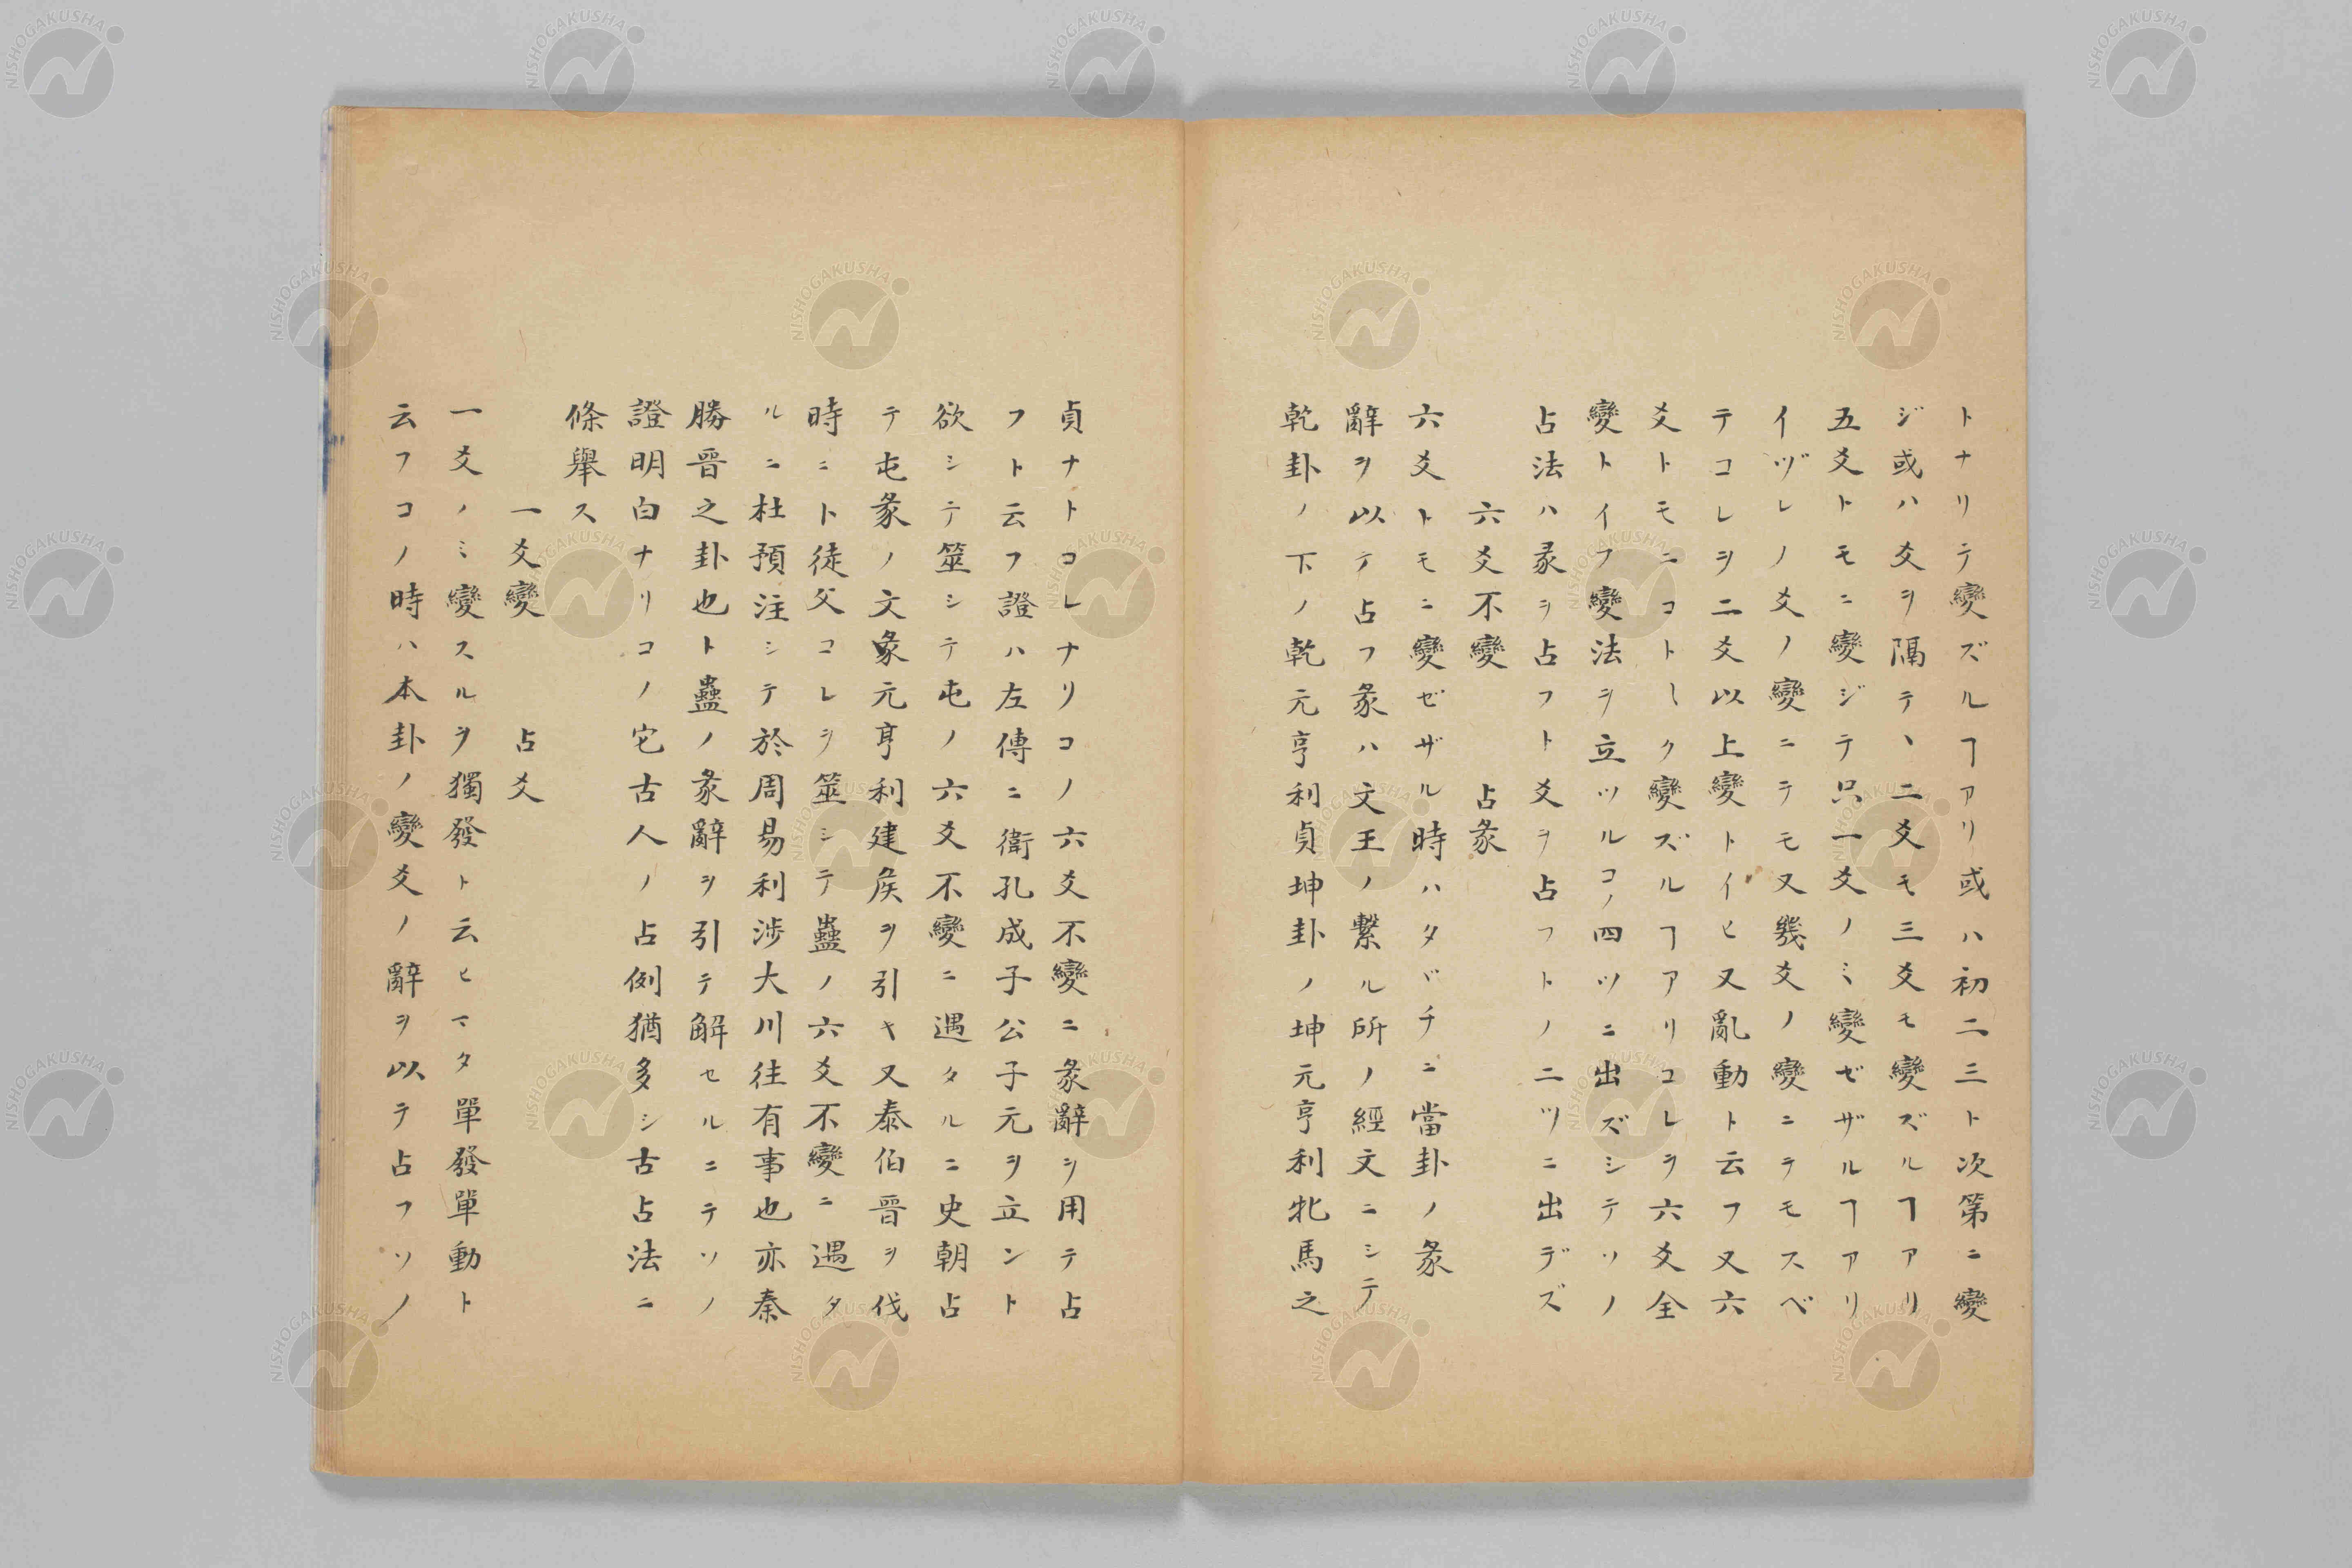 トナリテ變ズルヿアリ或ハ初二三ト次第ニ變
ジ或ハ爻ヲ隔テヽ二爻モ三爻モ變ズルヿアリ
五爻トモニ變ジテ只一爻ノミ變ゼザルヿアリ
イヅレノ爻ノ變ニテモ又幾爻ノ變ニテモスベ
テコレヲ二爻以上變トイヒ又亂動ト云フ又六
爻トモニコト〱ク變ズルヿアリコレヲ六爻全
變トイフ變法ヲ立ツルコノ四ツニ出ズシテソノ
占法ハ彖ヲ占フト爻ヲ占フトノ二ツニ出デズ
六爻不變 占彖
六爻トモニ變ゼザル時ハタヾチニ當卦ノ彖
辭ヲ以テ占フ彖ハ文王ノ繫ル所ノ經文ニシテ
乾卦ノ下ノ乾元亨利貞坤卦ノ坤元亨利牝馬之
貞ナトコレナリコノ六爻不變ニ彖辭ヲ用テ占
フト云フ證ハ左傳ニ衛孔成子公子元ヲ立ント
欲シテ筮シテ屯ノ六爻不變ニ遇タルニ史朝占
テ屯彖ノ文彖元亨利建侯ヲ引キ又秦伯晉ヲ伐
時ニト徒父コレヲ筮シテ蠱ノ六爻不變ニ遇タ
ルニ杜預注シテ於周易利涉大川往有事也亦秦
勝晉之卦也ト蠱ノ彖辭ヲ引テ解セルニテソノ
證明白ナリコノ它古人ノ占例猶多シ古占法ニ
條舉ス
一爻變 占爻
一爻ノミ變スルヲ獨發ト云ヒマタ單發單動ト
云フコノ時ハ本卦ノ變爻ノ辭ヲ以テ占フソノ
NISHOGAKUSHA